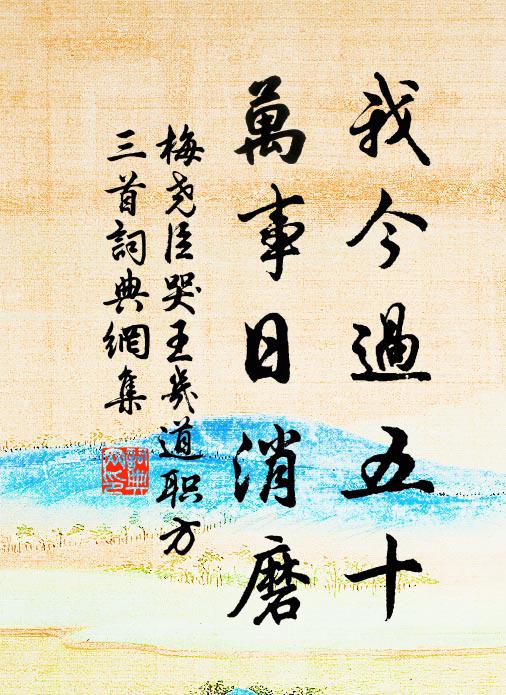 我今過五十
萬事日消磨
梅尧臣哭王幾道职方
三首詞典網集